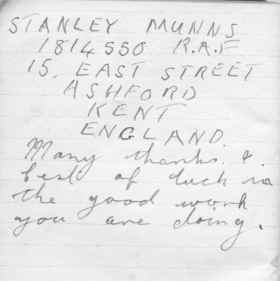 STANLEY MUNNS
1814550 R.A.F
15. EAST STREET
ASHFORD
KENT
ENGLAND.
Many thanks &
best of luck in
the good work
you are doing.